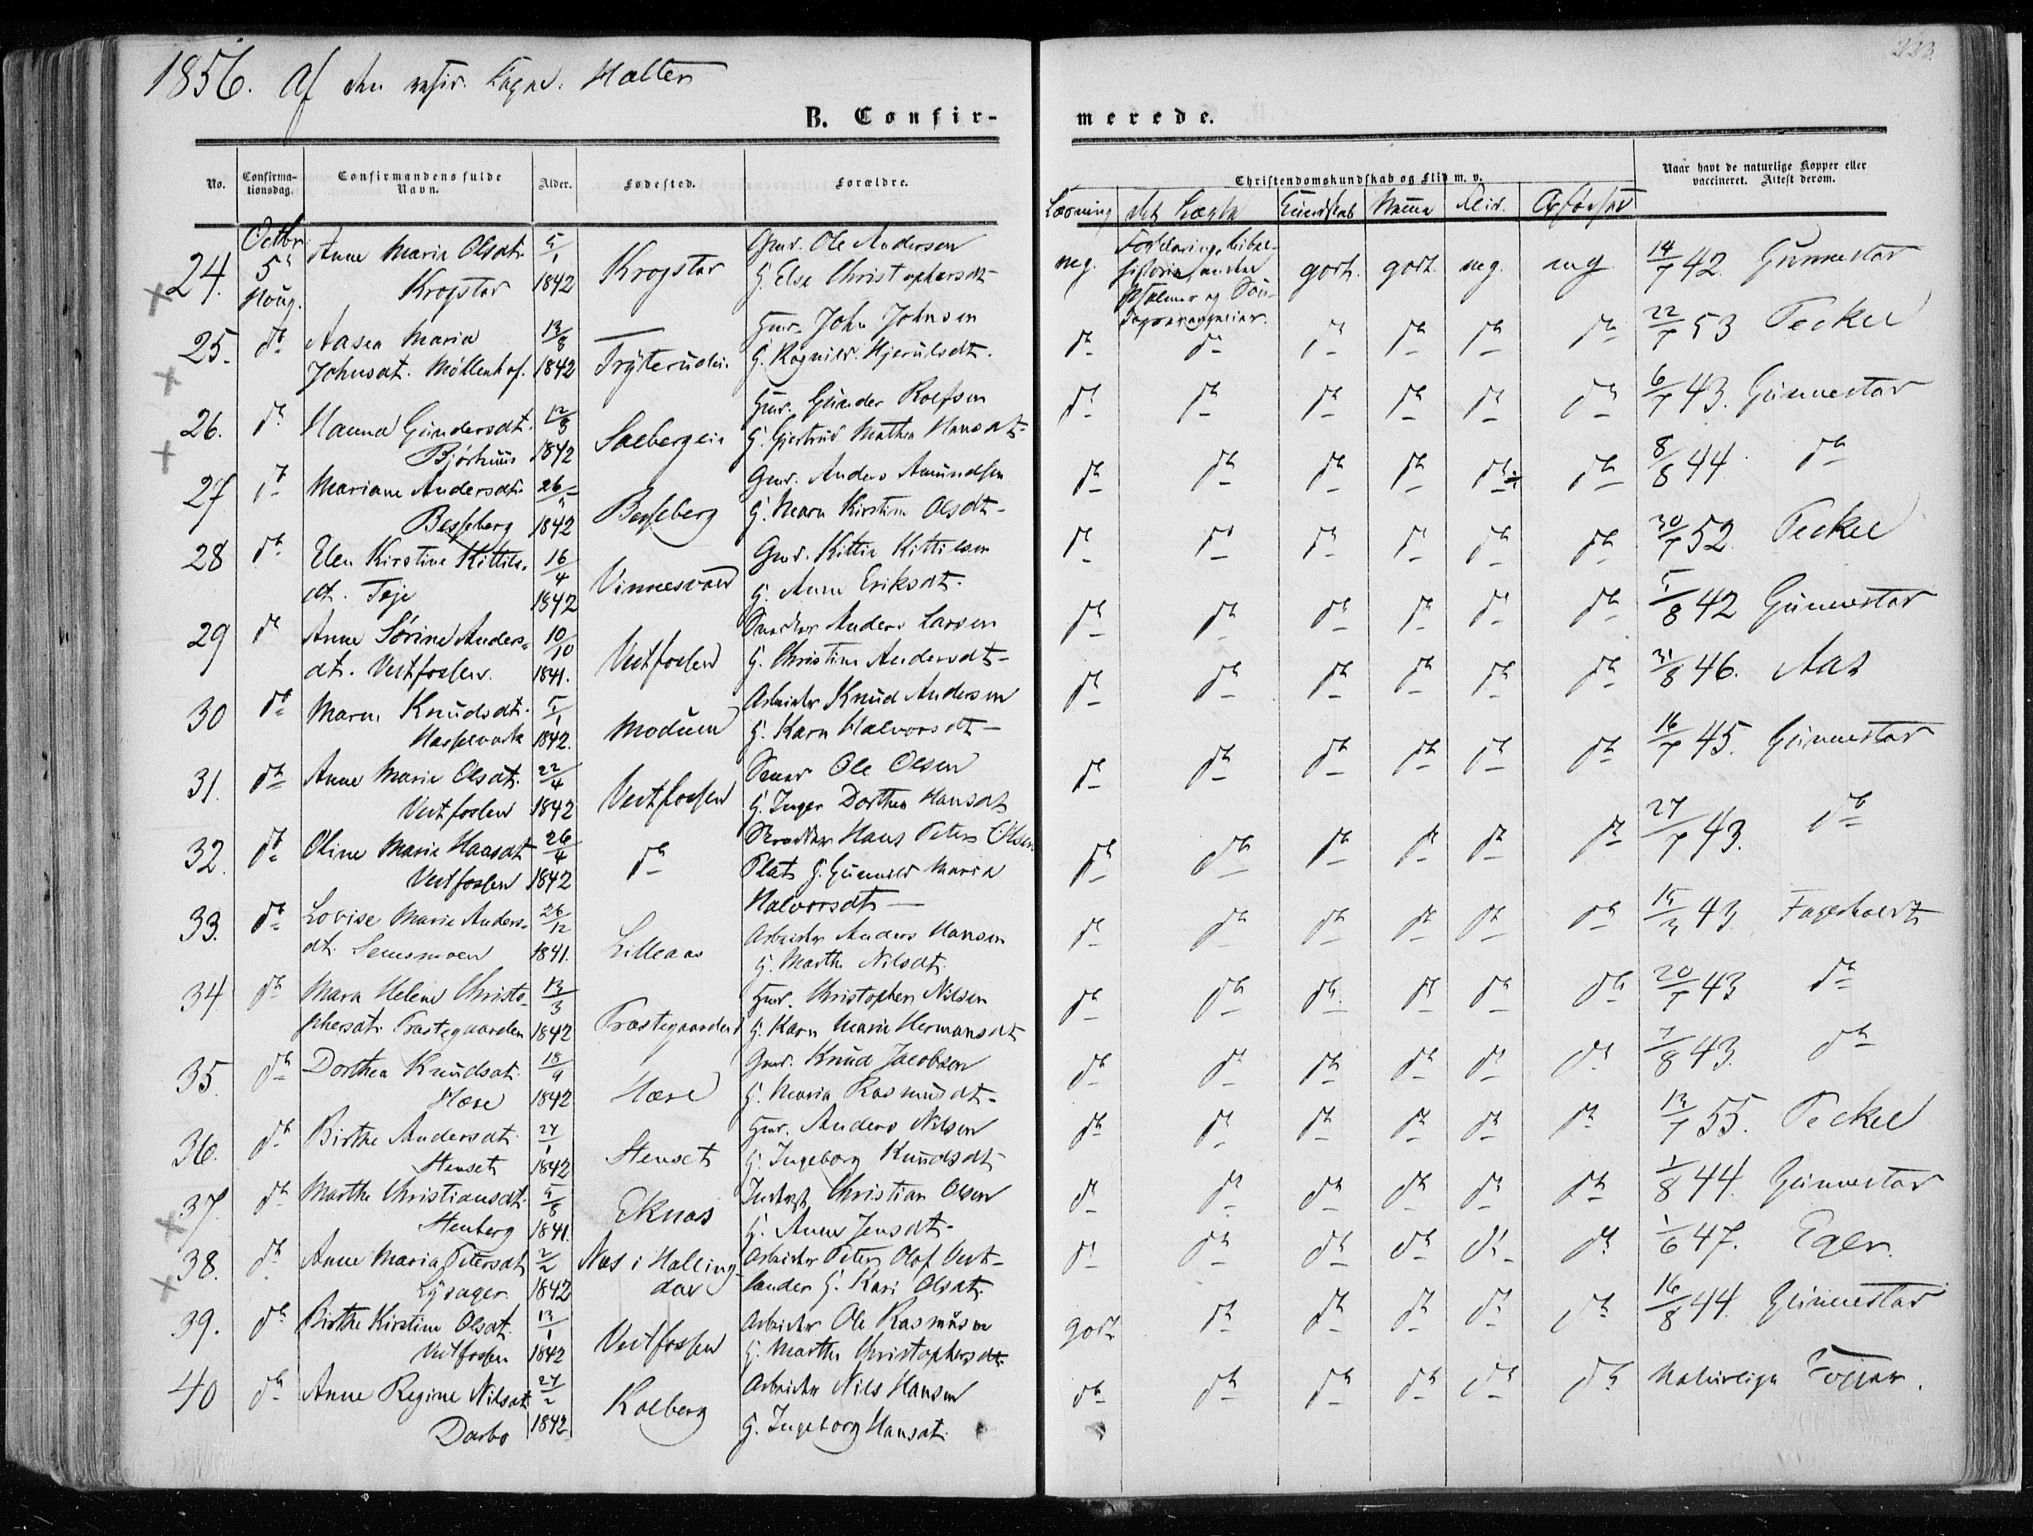 1856. Af den Sogne. Halten
223
B. Confir-
merede.
No.
Confirma-
tionsdag.
Confirmandens fulde
Navn.
Alder.
Fødested.
Forældre.
Christendomskundskab og Flid m. v.
Naar havt de naturlige Kopper eller
vaccineret. Attest derom.
Læsning det Lagte Kundskab Flid. Opførsel
24. Octbr. 5 Houg. Anne Marie Olsdt. Krogstar 5/1 1842 Krogstar Gmd. Ole Andersen
G. Else Christophersdt.
mg. Forklaring, Bibel-
historie,
Psalmer og
godt. godt. mg. mg 14/7 42. Gunnestar
25. do Aasea Maria
Johnsdt. Møllenhof. 13/8 1842 Huusm. John Johnsen
G. Ragnild Hjerulsdt.
do do do do do do 22/7 53 Peckel
26. do Hanna Gundersdt.
Bjørhuus 12/3 1842 Solbergeie Huusm. Gunder Rolfsen
G. Gjertrud Mathea Hansdt.
do do do do do do 6/7 43. Gunnestar
27 do Mariane Andersdt.
Besseberg 1842 Besseberg Gmd. Anders Amundsen
G. Maren Kirstine Olsdt.
do do do do do do 8/8 44. do
28 do Elen Kirstine Kittils-
dt. Teje 16/4 1842 Gmd. Kittil Kittilsen
G. Anne Eriksdt.
do do do do do do 30/7 52. Peckel
29 do Anne Sørine Anders-
dt. Vestfossen. 10/10 1841. Vestfossen Anders Larsen
G. Christine Andersdt.
do do do do do do 5/8 42 Gunnestar
30 do Maren Knudsdt.
1842. Modum Arbeider Knud Andersen
G. Karen Halvorsdt.
do do do do do do 31/8 46. Aas
31. do Anne Marie Olsdt.
Vestfossen 22/4 1842 Vestfossen Ole Olsen
G. Inger Dorthea Hansdt.
do do do do do do 16/7 45. Gunnestar
32. do Oline Marie Hansdt.
Vestfossen 26/4 1842 do Skrædder Hans Peter Olsen
Plat G. Gunnild Maria
Halvorsdt.
do do do do do do 27/7 43. do
33. do Lovise Marie Anders-
dt. Semsmoen 26/12 1841. Lilleaas Arbeider Anders Hansen
G. Marthe Nilsdt.
do do do do do do 43. Fageholdt
34 do Maren Helene Christo-
phersdt. Præstegaarden 13/3 1842 Præstegaarden Huusm. Christopher Nilsen
G. Karen Marie Hermansdt.
do do do do do do 20/7 43 do
35. do Dorthea Knudsdt.
Hære 1842 Hære Gmd. Knud Jacobsen
G. Maria Rasmusdt.
do do do do do do 7/8 43. do
36. do Birthe Andersdt.
Stenset 27/1 1842 Stenset Huusm. Anders Nilsen
G. Ingeborg Knudsdt.
do do do do do do 13/7 55. Peckel
37. do Marthe Christiansdt.
Stenberg 5/8 1841. Eknæs Inderst Christian Olsen
G. Anne Jensdt.
do do do do do do 1/8 44. Gunnestar
38. do Anne Maria Petersdt.
Lysager. 2/2 1842 Næs i Halling-
dal Arbeider Peter Olof Vest-
lander G. Kari Olsdt.
do do do do do do 1/6 47. Eger.
39. do Birthe Kirstine Olsdt.
Vestfossen 13/1 1842 Vestfossen Arbeider Ole Rasmusen
G. Marthe Christophersdt.
godt do do do do do 16/8 44. Gunnestar
40 do Anne Regine Nilsdt.
Darbo 27/2 1842 Kolberg Arbeider Nils Hansen
G. Ingeborg Hansdt.
do do do do do do Naturlige Kopper.